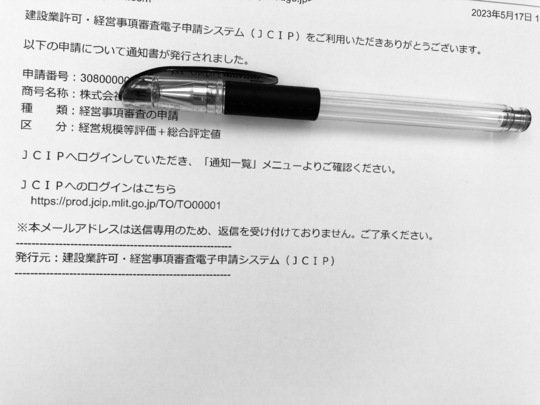 2023年5月17日
建設業許可・経営事項審査電子申請システム（ＪＣＩＰ）をご利用いただきありがとうございます。
以下の申請について通知書が発行されました。
申請番号：3080000
商号名称：株式会
種　　類：経営事項審査の申請
区　　分：経営規模等評価＋総合評定値
ＪＣＩＰへログインしていただき、「通知一覧」メニューよりご確認ください。
ＪＣＩＰへのログインはこちら
https://prod.jcip.mlit.go.jp/TO/TO00001
※本メールアドレスは送信専用のため、返信を受け付けておりません。ご了承ください。
------------------------------------------------------
発行元：建設業許可・経営事項審査電子申請システム（ＪＣＩＰ）
------------------------------------------------------